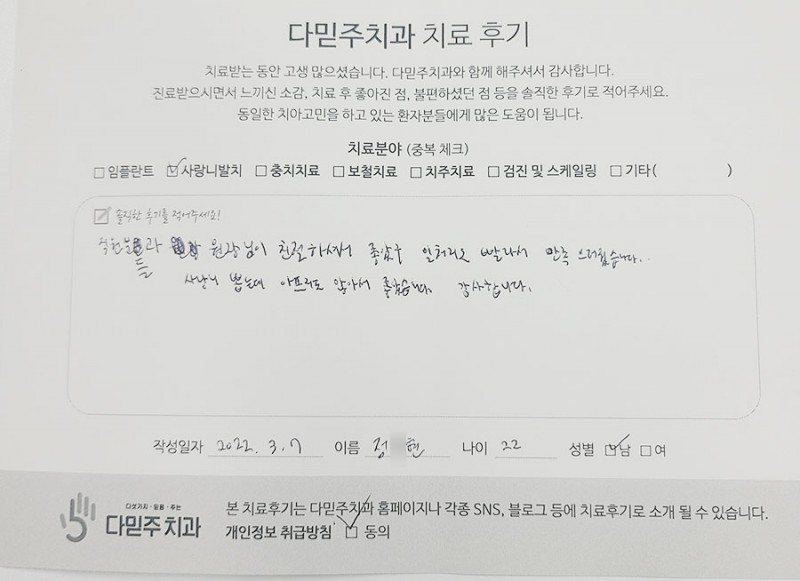 다믿주치과 치료 후기
치료받는 동안 고생 많으셨습니다. 다믿주치과와 함께 해주셔서 감사합니다.
진료받으시면서 느끼신 소감, 치료 후 좋아진 점, 불편하셨던 점 등을 솔직한 후기로 적어주세요.
동일한 치아고민을 하고 있는 환자분들에게 많은 도움이 됩니다.
치료분야 (중복 체크)
□ 임플란트 ☑ 사랑니발치 □ 충치치료 □ 보철치료 □ 치주치료 □ 검진 및 스케일링 □ 기타( )
솔직한 후기를 적어주세요!
직원분들과 원장님이 친절하셔서 좋았구 일처리도 빨라서 만족스러웠습니다..
사랑니 뽑는데 아프지도 않아서 좋았습니다. 감사합니다.
작성일자 2022. 3. 7 이름 정 현 나이 22 성별 ☑남 □여
다섯가지·믿음·주는
다믿주치과
본 치료후기는 다믿주치과 홈페이지나 각종 SNS, 블로그 등에 치료후기로 소개 될 수 있습니다.
개인정보 취급방침 ☑ 동의